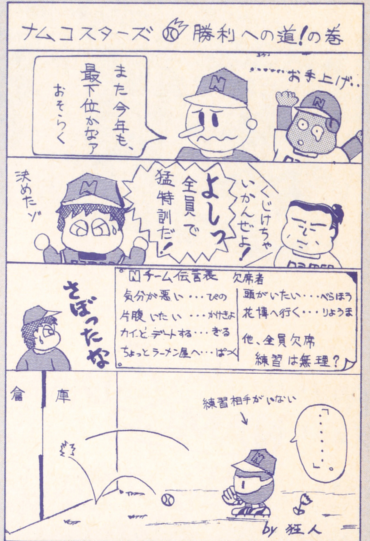 ナムコスターズ 勝利への道!の巻
また今年も、
最下位かなァ
おそらく
お手上げ‥
N
くじけちゃ
いかんぜよ!
よしっ
全員で
猛特訓だ!
決めたゾ
N
さぼったな
Nチーム伝言表
気分が悪い・・・ひの
片腹いたい・・・かげきよ
カイとデートする・・・ぎる
ちょっとラーメン屋へ・・・ぱっく
欠席者
頭がいたい・・・べらぼう
花博へ行く・・・りょうま
他、全員欠席
練習は無理?
倉庫
練習相手がいない
「・・・・・・。」
by 狂人